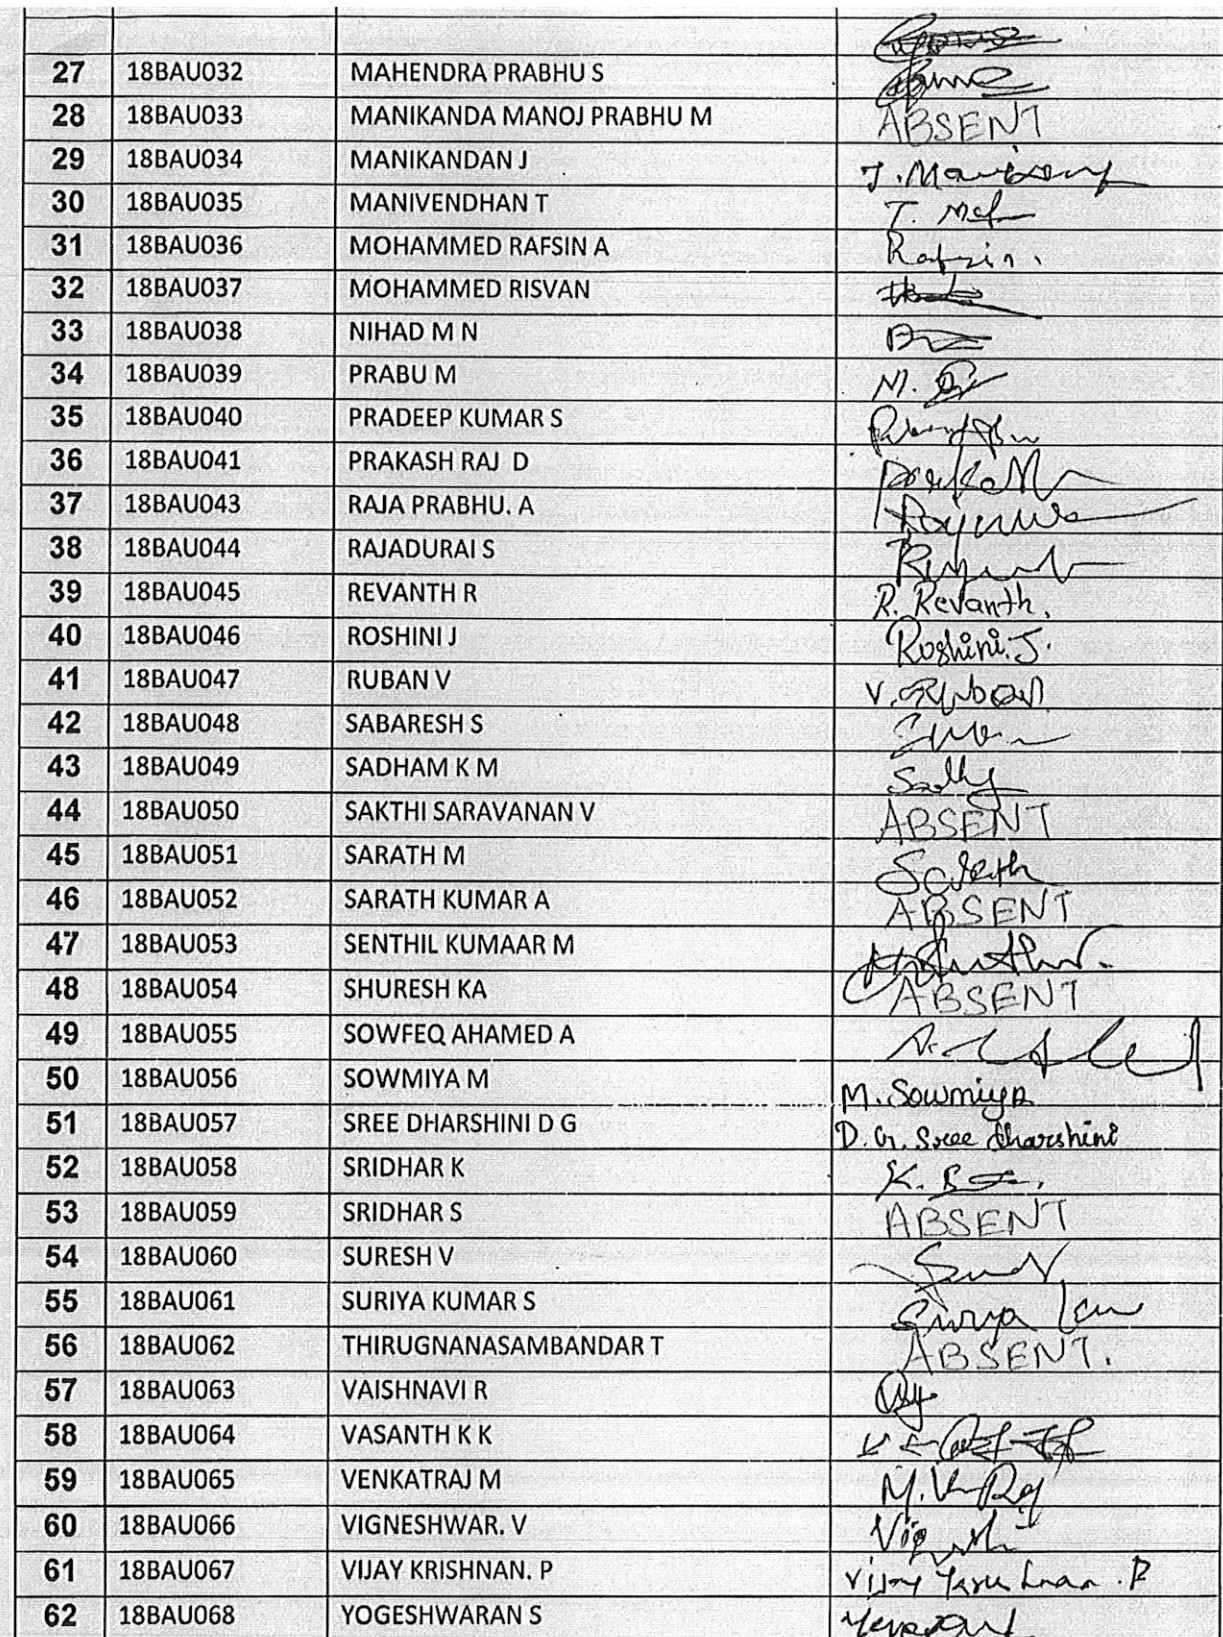 27 18BAU032 MAHENDRA PRABHU S
28 18BAU033 MANIKANDA MANOJ PRABHU M ABSENT
29 18BAU034 MANIKANDAN J J.
30 18BAU035 MANIVENDHAN T T.
31 18BAU036 MOHAMMED RAFSIN A Rafsin.
32 18BAU037 MOHAMMED RISVAN
33 18BAU038 NIHAD M N
34 18BAU039 PRABU M M.
35 18BAU040 PRADEEP KUMAR S
36 18BAU041 PRAKASH RAJ D
37 18BAU043 RAJA PRABHU. A
38 18BAU044 RAJADURAI S
39 18BAU045 REVANTH R R. Revanth.
40 18BAU046 ROSHINI J Roshini. J.
41 18BAU047 RUBAN V V.
42 18BAU048 SABARESH S
43 18BAU049 SADHAM K M
44 18BAU050 SAKTHI SARAVANAN V ABSENT
45 18BAU051 SARATH M Sarath
46 18BAU052 SARATH KUMAR A ABSENT
47 18BAU053 SENTHIL KUMAAR M
48 18BAU054 SHURESH KA ABSENT
49 18BAU055 SOWFEQ AHAMED A
50 18BAU056 SOWMIYA M M. Sowmiya
51 18BAU057 SREE DHARSHINI D G D. G. Sree dharshini
52 18BAU058 SRIDHAR K K.
53 18BAU059 SRIDHAR S ABSENT
54 18BAU060 SURESH V
55 18BAU061 SURIYA KUMAR S
56 18BAU062 THIRUGNANASAMBANDAR T ABSENT.
57 18BAU063 VAISHNAVI R
58 18BAU064 VASANTH K K
59 18BAU065 VENKATRAJ M
60 18BAU066 VIGNESHWAR. V
61 18BAU067 VIJAY KRISHNAN. P
62 18BAU068 YOGESHWARAN S